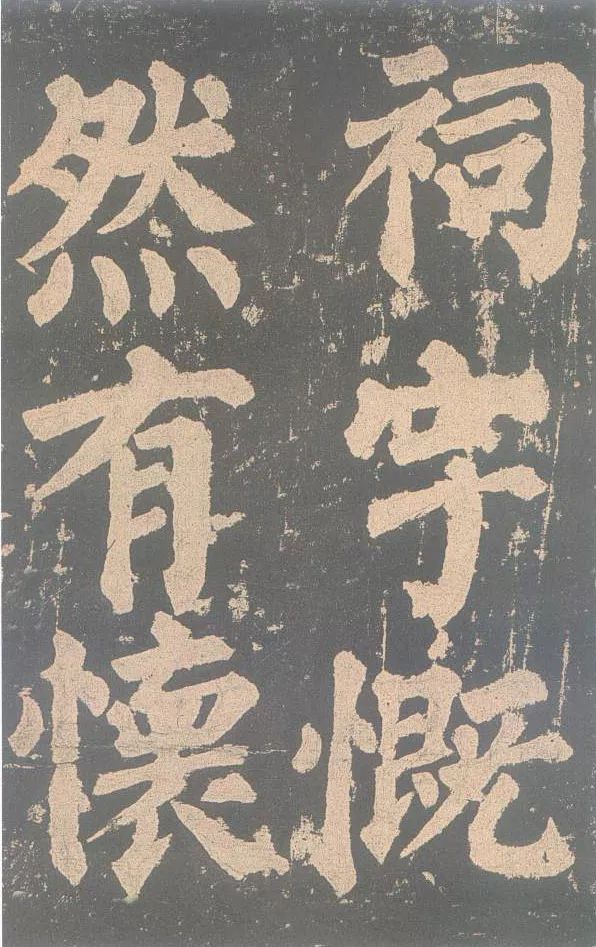 祠宇慨
然有懷